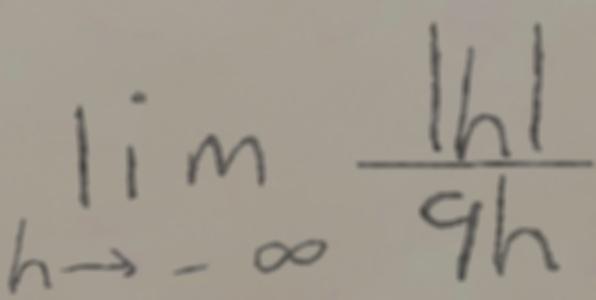 lim |h|
h→-∞ 9h